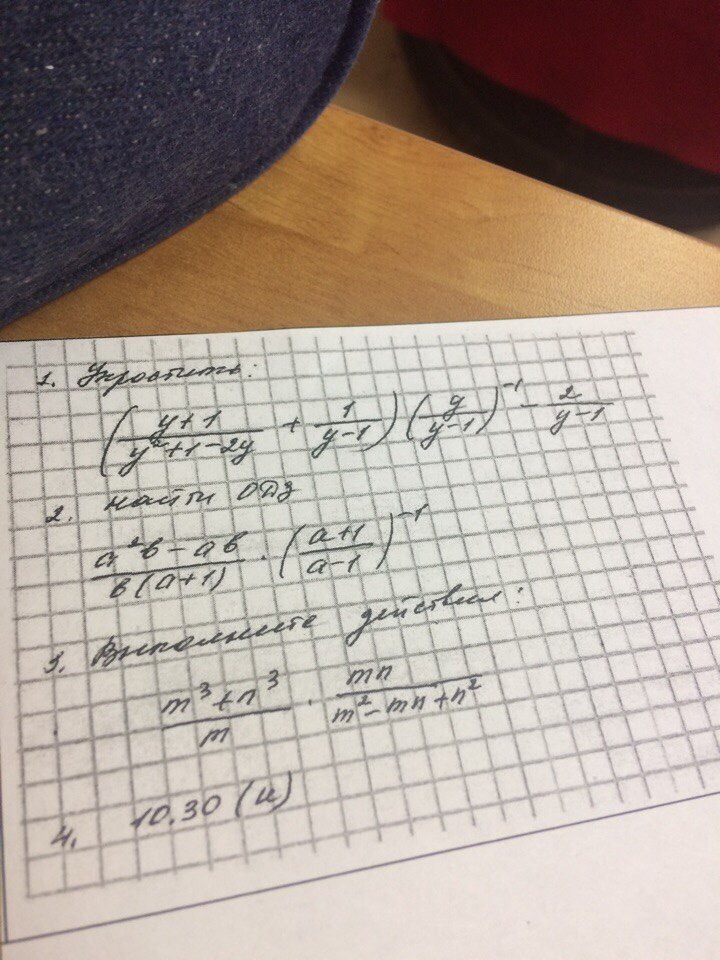 1. Упростить:
(y+1/y²+1-2y + 1/y-1)(y/y-1)⁻¹ - 2/y-1
2. найти ОДЗ
a²b-ab/b(a+1) · (a+1/a-1)⁻¹
3. Выполните действия:
m³+n³/m · mn/m²-mn+n²
4. 10.30 (и)